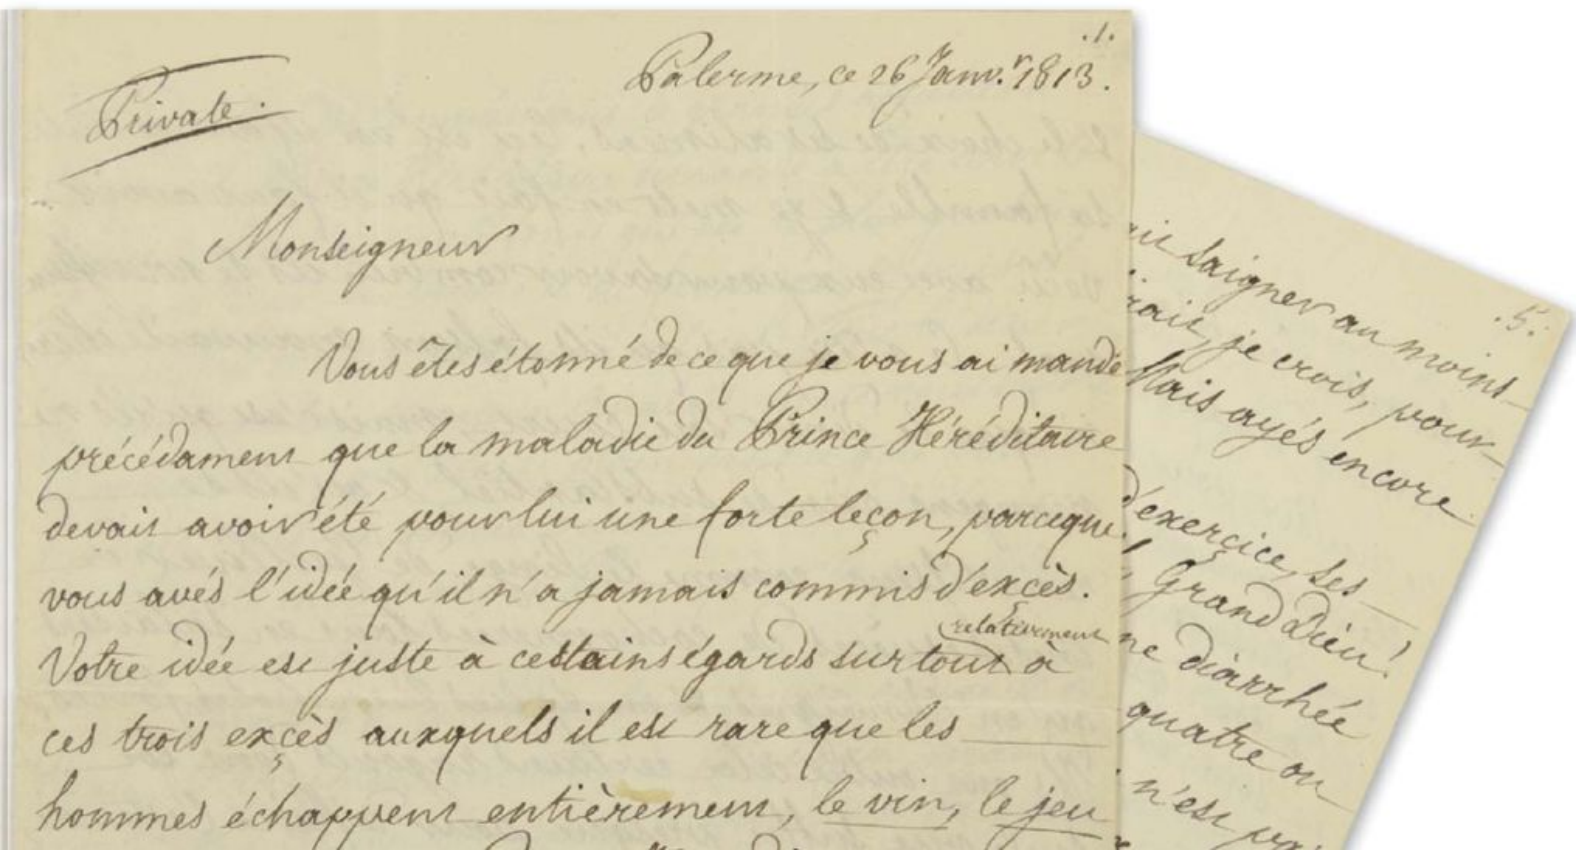 .1.
Palerme, ce 26 Janv.r 1813.
Private.
Monseigneur
Vous êtes étonné de ce que je vous ai mandé
précédament que la maladie du Prince Héréditaire
devait avoir été pour lui une forte leçon, parceque
vous avés l'idée qu'il n'a jamais commis d'excès.
relativement
Votre idée est juste à certains égards surtout à
ces trois excès auxquels il est rare que les
hommes échappent entièrement, le vin, le jeu
.5.
saigner au moins
je crois, pour
Mais ayés encore
d'exercice, ses
Grand Dieu!
diarrhée
quatre ou
n'est